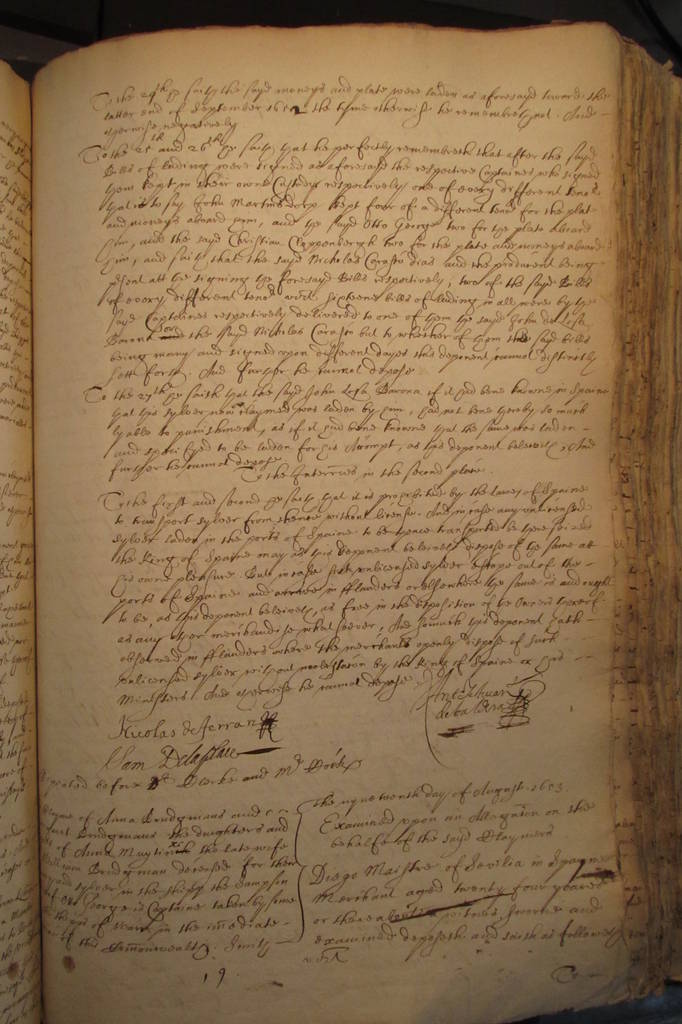 To the 24th hee saith the sayd moneys and plate were laden as aforesayd toward the
latter end of September 1652 the tyme otherwise he remembreth not. And
otherwise negatively
To the 25th and 26th hee saith that he perfectly remembreth that after the sayd
Bills of lading were signed as aforesayd the respective Captaines who signed
them kept in their owne Custody respectively one of every different tenor
that is to say John Martinsdorp kept four of a different tenor for the plate
and moneys aboard him, and the sayd Otto George two for the plate aboard
him, and the sayd Christian Cloppenbergh two for the plate and moneys aboard
him, and saith that the sayd Nicholas Corasen dias and the producent being
present att the signing the foresayd Bills respectively, two of the sayd Bills
of every different tenor vizt sixteene bills of lading in all were by the
sayd Captaines respectively delivered to one of them the sayd John de Lesa
Barona or the sayd Nicholas Corason but to whether of them the sayd bills
being many and signed upon different dayes this deponent cannot distinctly
sett forth. And further he cannot depose
To the 27th hee saith that the sayd John Lesa Barona if it had bene knowne in Spaine
that the sylver now claymed was laden by him, had not bene thereby so much
lyable to punishment, as if it had bene knowne that the same was laden
and specifyed to be laden for his Accompt, as this deponent beleeveth, And
further he cannot depose
To the Interries in the second place.
To the first and second hee saith that it is prohibited by the lawes of Spaine
to transport sylver from thence without license. And in case any unlicensed
sylver laden in the ports of Spaine to be thence transported be there seized
the King of Spaine may as this deponent beleeveth dispose of the same att
his owne pleasure. But in case such unlicensed sylver escape out of the
ports of Spaine and arrive in fflanders or elsewhere the same is and ought
to be, as this deponent beleeveth, as free in the disposition of the Owners thereof
as any other merchandise whatsoever, And somuch this deponent hath
observed in fflanders where the merchants openly dispose of such
unlicensed sylver without molestation by the King of Spaine or his
Ministers. And otherwise he cannot depose.
Nicolas de Terran
Sam Delaplace
repeated before Dr Clerke and Mr
Clayme of Anna Bridgmans and
Bridgmans the daughters and
of Anna the late wife
Bridgman deceased for their
and sylver in the shipp the Sampson
of Otto George is Captaine taken by some
the shipps of warr in the immediate
of this Commonwealth. Smith
the nyneteenth day of August 1653.
Examined upon an Allegation on the
behalfe of the said Claymers
Diego Maistre of Sevilia in Spayne
Merchant aged twenty four yeares
or thereabouts a witnes sworne and
examined deposeth and saith as followeth
vizt
To
19.